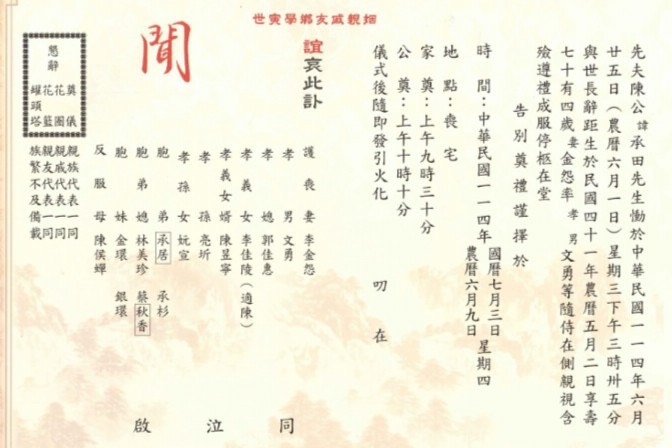 先夫陳公諱承田先生慟於中華民國一一四年六月
廿五日（農曆六月一日）星期三下午三時卅五分
與世長辭距生於民國四十一年農曆五月二日享壽
七十有四歲妻金怨率孝男文勇等隨侍在側親視含
殮遵禮成服停柩在堂
告別奠禮謹擇於
時間：中華民國一一四年國曆七月三日農曆六月九日星期四
地點：喪宅
家奠：上午九時三十分
公奠：上午十時十分
儀式後隨即發引火化 叨在
姻親戚友鄉學寅世
誼哀此訃
聞
護喪妻 李金怨
孝男 文勇
孝媳 郭佳惠
孝義女 李佳陵（適陳）
孝義女婿 陳昱寧
孝孫 亮圻
孝孫女 妧宣
胞弟 承居 承杉
胞弟媳 林美珍 蔡秋香
胞妹 金環 銀環
反服母 陳侯嬋
親族代表一同
親戚代表一同
親友代表一同
族繁不及備載
同泣啟
懇辭
奠儀
花圈
花籃
罐頭塔